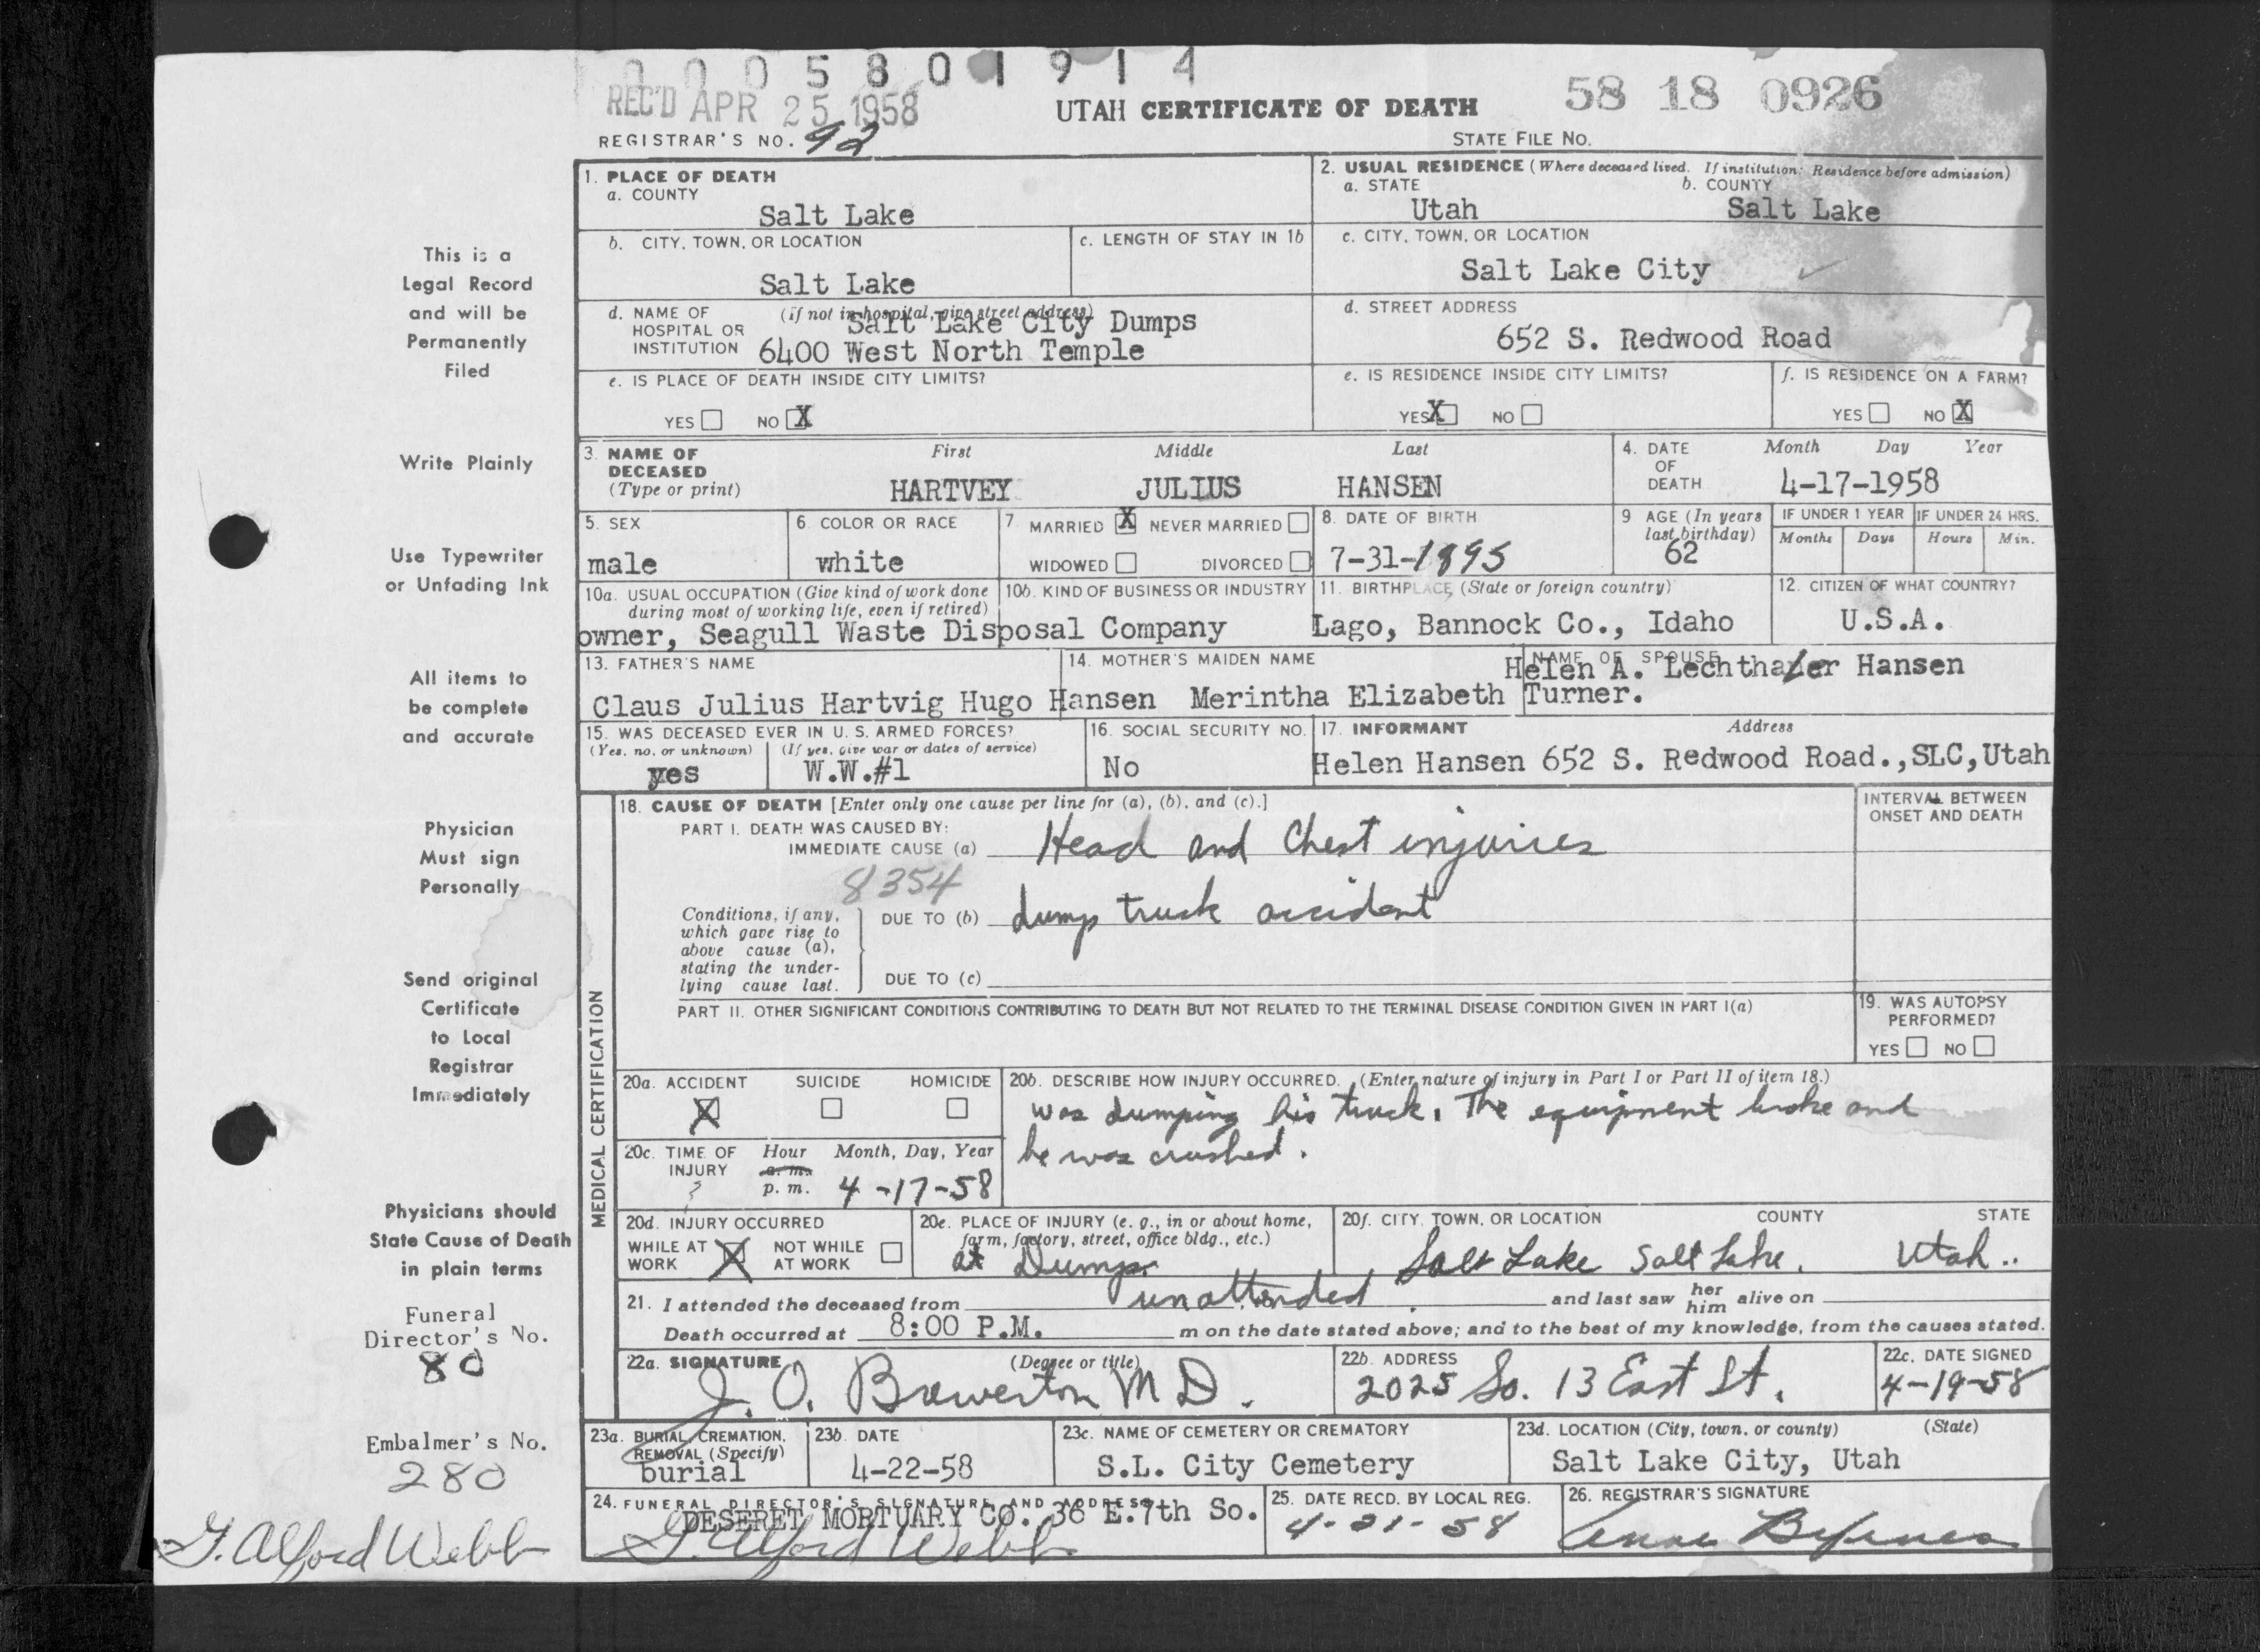 0005801914
REC'D APR 25 1958
UTAH CERTIFICATE OF DEATH
58 18 0926
REGISTRAR'S NO. 92
STATE FILE NO.
1. PLACE OF DEATH
a. COUNTY
Salt Lake
2. USUAL RESIDENCE (Where deceased lived. If institution: Residence before admission)
a. STATE
Utah
b. COUNTY
Salt Lake
b. CITY, TOWN, OR LOCATION
Salt Lake
c. LENGTH OF STAY IN 1b
c. CITY, TOWN, OR LOCATION
Salt Lake City
d. NAME OF HOSPITAL OR INSTITUTION
(if not in hospital, give street address)
Salt Lake City Dumps
6400 West North Temple
d. STREET ADDRESS
652 S. Redwood Road
e. IS PLACE OF DEATH INSIDE CITY LIMITS?
YES NO X
e. IS RESIDENCE INSIDE CITY LIMITS?
YES X NO
f. IS RESIDENCE ON A FARM?
YES NO X
3. NAME OF DECEASED (Type or print)
First Middle Last
HARTVEY JULIUS HANSEN
4. DATE OF DEATH
Month Day Year
4-17-1958
5. SEX
male
6. COLOR OR RACE
white
7. MARRIED X NEVER MARRIED
WIDOWED DIVORCED
8. DATE OF BIRTH
7-31-1895
9 AGE (In years last birthday)
62
IF UNDER 1 YEAR
Months Days
IF UNDER 24 HRS.
Hours Min.
10a. USUAL OCCUPATION (Give kind of work done during most of working life, even if retired)
10b. KIND OF BUSINESS OR INDUSTRY
owner, Seagull Waste Disposal Company
11. BIRTHPLACE (State or foreign country)
Lago, Bannock Co., Idaho
12. CITIZEN OF WHAT COUNTRY?
U.S.A.
13. FATHER'S NAME
Claus Julius Hartvig Hugo Hansen
14. MOTHER'S MAIDEN NAME
Merintha Elizabeth Turner.
NAME OF SPOUSE
Helen A. Lechthaler Hansen
15. WAS DECEASED EVER IN U. S. ARMED FORCES?
(Yes, no, or unknown) (If yes, give war or dates of service)
yes W.W.#1
16. SOCIAL SECURITY NO.
No
17. INFORMANT Address
Helen Hansen 652 S. Redwood Road.,SLC,Utah
MEDICAL CERTIFICATION
18. CAUSE OF DEATH [Enter only one cause per line for (a), (b), and (c).]
INTERVAL BETWEEN ONSET AND DEATH
PART I. DEATH WAS CAUSED BY:
IMMEDIATE CAUSE (a) Head and Chest injuries
8354
Conditions, if any, which gave rise to above cause (a), stating the underlying cause last.
DUE TO (b) dump truck accident
DUE TO (c)
PART II. OTHER SIGNIFICANT CONDITIONS CONTRIBUTING TO DEATH BUT NOT RELATED TO THE TERMINAL DISEASE CONDITION GIVEN IN PART I(a)
19. WAS AUTOPSY PERFORMED?
YES NO
20a. ACCIDENT SUICIDE HOMICIDE
X
20b. DESCRIBE HOW INJURY OCCURRED. (Enter nature of injury in Part I or Part II of item 18.)
was dumping his truck. The equipment broke and
he was crushed.
20c. TIME OF INJURY
Hour Month, Day, Year
a. m.
? p. m. 4-17-58
20d. INJURY OCCURRED
WHILE AT WORK X NOT WHILE AT WORK
20e. PLACE OF INJURY (e. g., in or about home, farm, factory, street, office bldg., etc.)
at Dumps
20f. CITY, TOWN, OR LOCATION COUNTY STATE
Salt Lake Salt Lake. Utah..
21. I attended the deceased from unattended and last saw her him alive on
Death occurred at 8:00 P.M. m on the date stated above; and to the best of my knowledge, from the causes stated.
22a. SIGNATURE (Degree or title)
J. O. Bowerton M D.
22b. ADDRESS
2025 So. 13 East St.
22c. DATE SIGNED
4-19-58
23a. BURIAL, CREMATION, REMOVAL (Specify)
burial
23b. DATE
4-22-58
23c. NAME OF CEMETERY OR CREMATORY
S.L. City Cemetery
23d. LOCATION (City, town, or county) (State)
Salt Lake City, Utah
24. FUNERAL DIRECTOR'S SIGNATURE AND ADDRESS
DESERET MORTUARY CO. 36 E.7th So.
G. Alford Webb
25. DATE RECD. BY LOCAL REG.
4-21-58
26. REGISTRAR'S SIGNATURE
This is a
Legal Record
and will be
Permanently
Filed
Write Plainly
Use Typewriter
or Unfading Ink
All items to
be complete
and accurate
Physician
Must sign
Personally
Send original
Certificate
to Local
Registrar
Immediately
Physicians should
State Cause of Death
in plain terms
Funeral
Director's No.
80
Embalmer's No.
280
G. Alford Webb